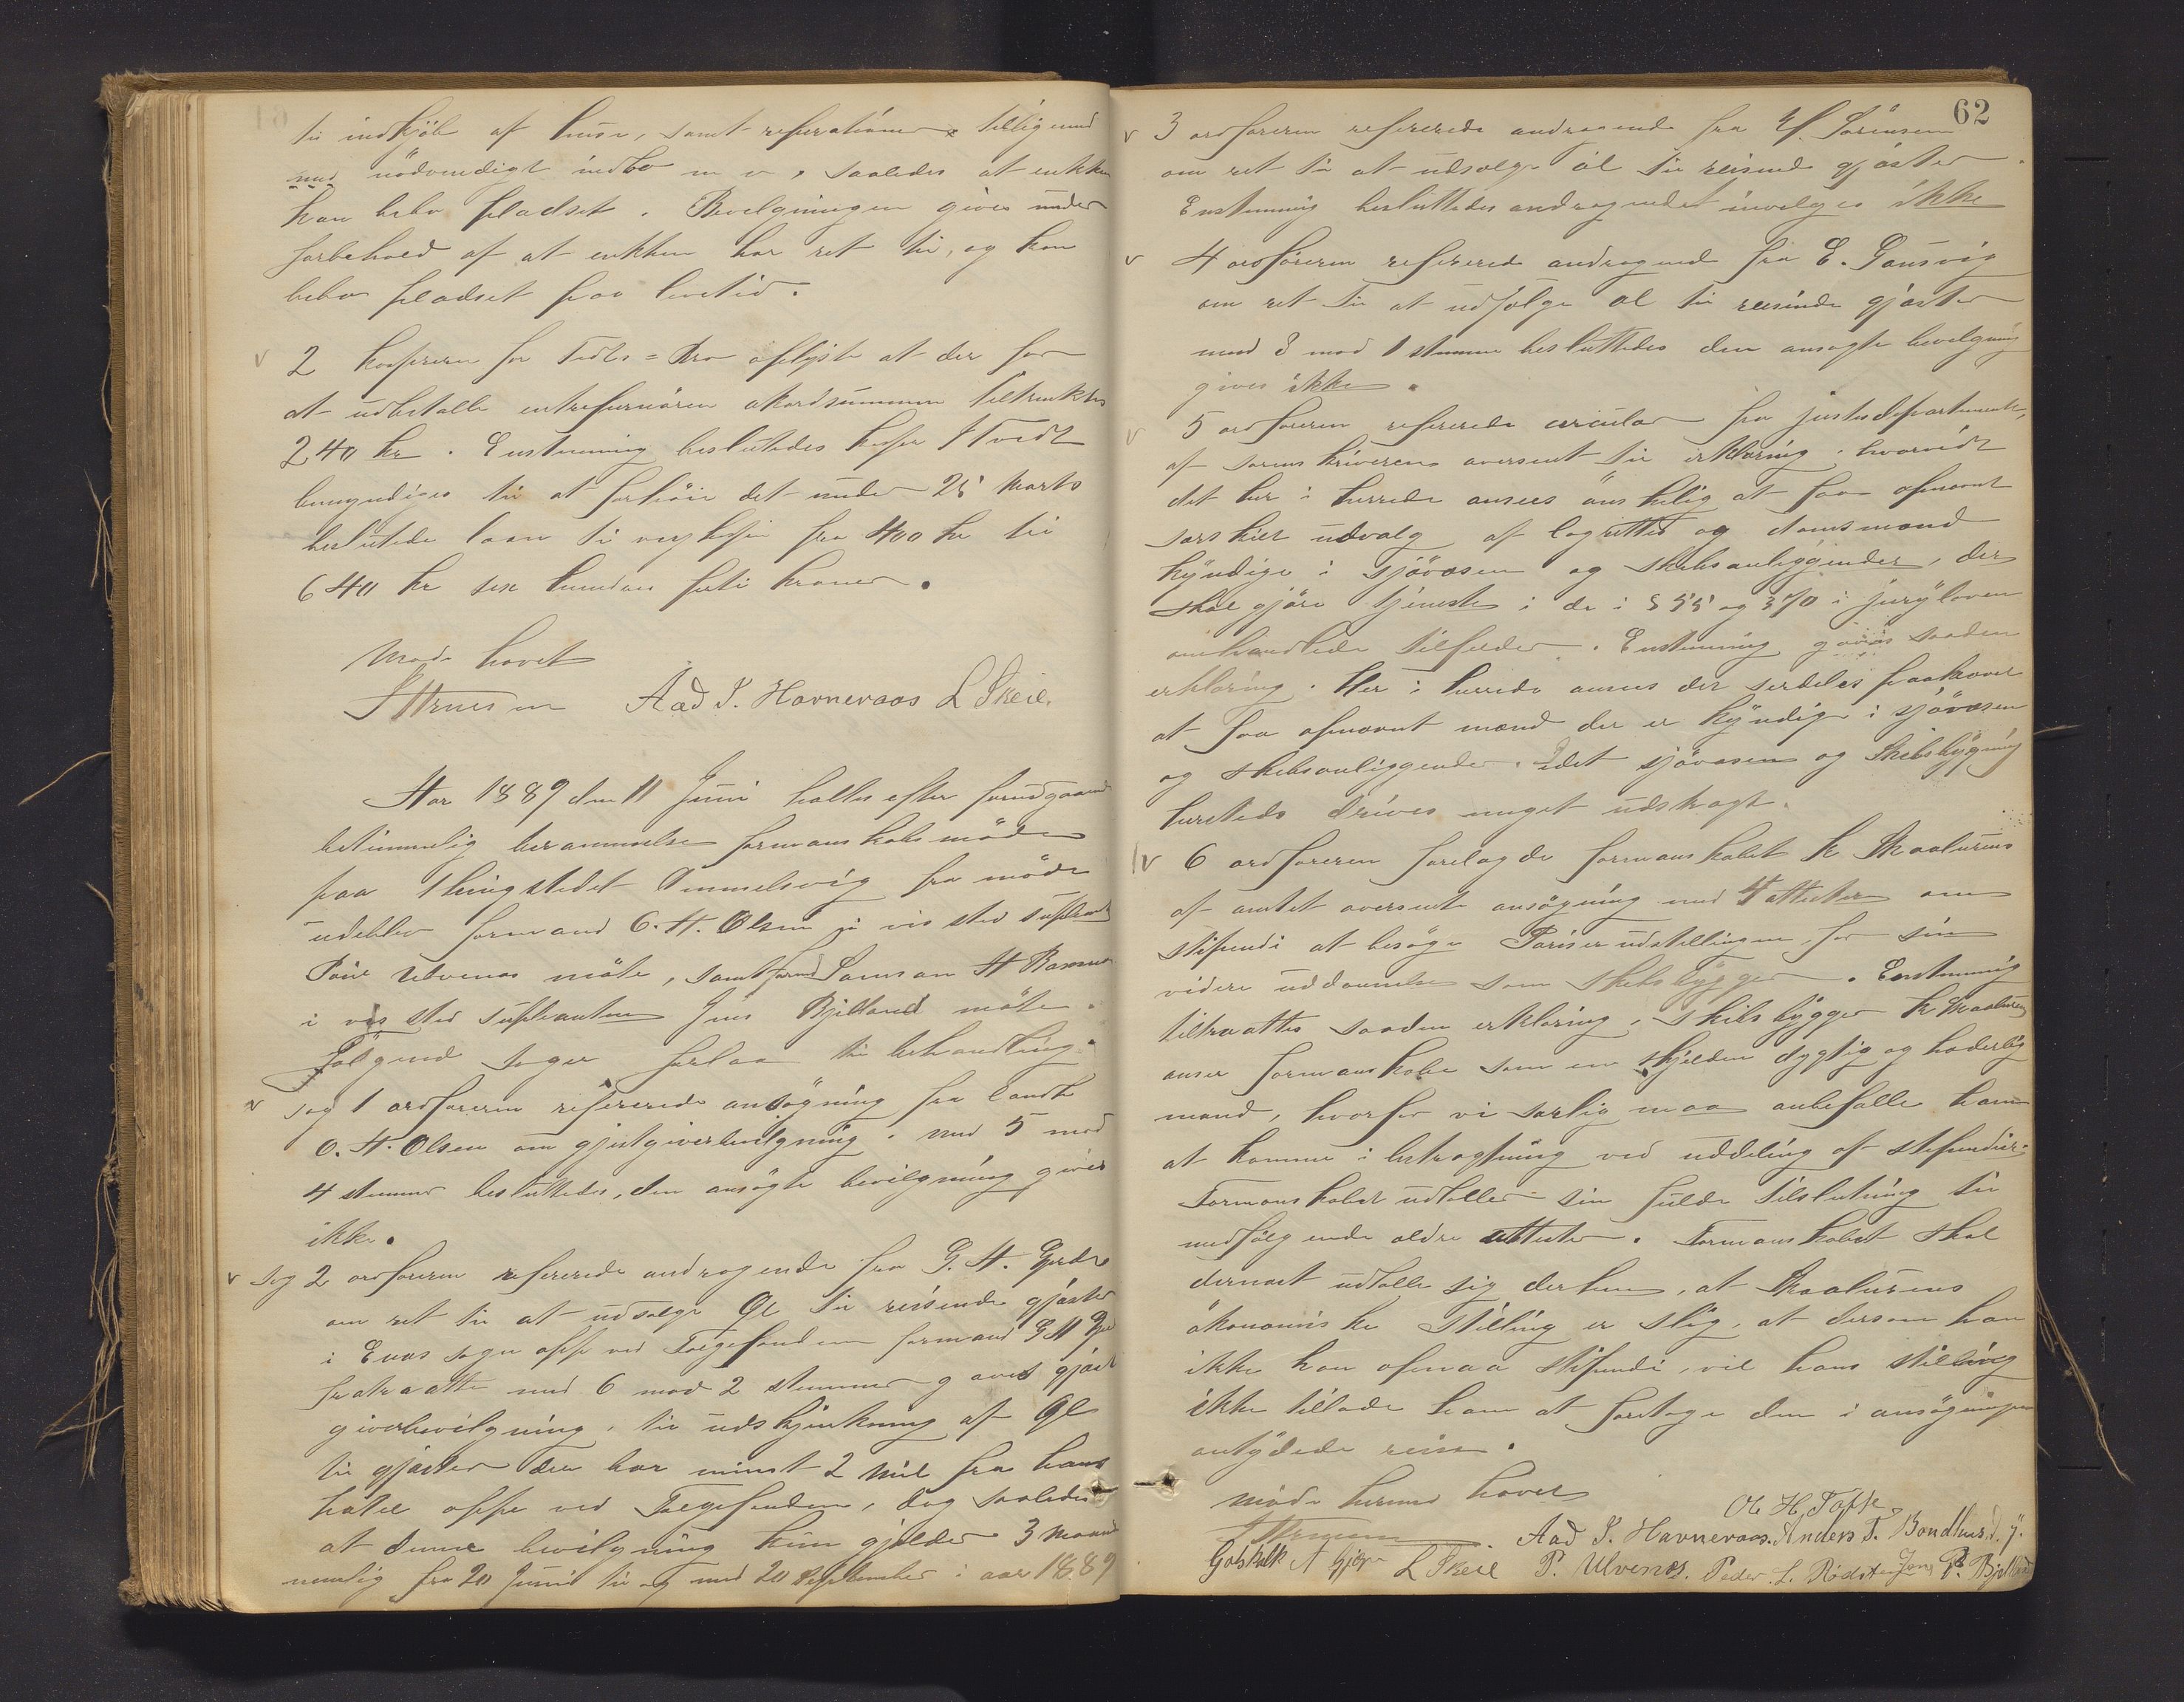 til indkjöb af huse, samt reperationer tilligemed
med nödvendigt indbo m v, saaledes at enken
kan bebo pladset. Bevelgningen gives under
forbehold af at enkken har ret til, og kan
bebo pladset paa livstid.
2 kassereren for oplyste at der for
at udbetalle entreprenören akordsummen tiltrænktes
240 kr. Enstemmig beslutedes
bemyndiges til at forhöie det under 25 Marts
beslutede laan til fra 400 kr til
640 kr sex hundrer firti kroner.
Möde hævet
Aad J. Havnevaas L Skeie.
Aar 1889 den 11 Juni holtes efter forudgaaende
betimmelig berammelse formanskabsmöde
paa Thingstedet Dimmelsvig fra möde
udeblev formand O. H. Olsen i vis sted suplant
Paul Ulvenæs mötte, samt formd Samson H
i vis sted suplianten Jens Bjelland mötte.
Fölgend sager forlaa til behandling.
sag 1 ordföreren refererede ansögning fra landh
O. H. Olsen om gjestgiverbevilgning. med 5 mod
4 stemmer besluttedes, den ansögte bevilgning gives
ikke.
Sag 2 ordföreren refererede andragende fra G. A. Gjerde
om ret til at udsælge Øl til reisende gjæster
i Enæs sogn oppe ved Folgefonden formand G A
fratraatte med 6 mod 2 stemmer gaves gjæst
giverbevilgning, til udskjenkning af Øl
til gjæster der har minst 2 Mil fra hans
hotel oppe ved Folgefonden, dog saaledes
at denne bevilgning kun gjelder 3 maaned
nemlig fra 20 Juni til og med 20 September i aar 1889
62
3 ordföreren refererede andragende fra Sörensen
om ret til at udsælge öl til reisend gjæster.
Enstemmig besluttedes andragendet invelges ikke
4 ordföreren refererede andragende fra E. Gausvig
om ret til at udsælge öl til reisende gjæster
med 8 mod 1 stemme besluttedes den ansögte bevelgning
gives ikke.
5 ordföreren refererede circular fra justisdepartementet,
af sorenskriveren oversent til erklæring. hvorvidt
det her i herrede ansees önskelig at faa opnævnt
særskilt udvalg af lagrettes og domsmænd
kyndige i sjövæsen og skibsanliggender, der
skal gjöre tjeneste i de i § 55 og 370 i juryloven
omhandlede tilfælder. Enstemmig gives saaden
erklæring. Her i herrede ansees det serdeles paakrævet
at faa opnævnt mænd der er kyndige i sjövæsen
og skibsanliggender. Idet sjövæsen og Skibsbygning
heristeds drives meget udstragt.
6 ordföreren forelagde formanskabet K Skaalurens
af amtet oversente ansögning med 4 attester om
stipendi at besöge Pariserudstellingen, for sin
videre uddannelse som Skibsbygger. Enstemmig
tiltraattes saaden erklæring, Skibsbygger K Skaaluren
anser formanskabet som en skjelden dygtig og hæderlig
mand, hvorfor vi særlig maa anbefalle ham
at komme i betragtning ved uddeling af stipendier.
Formanskabet udtaller sin fulde tilslutning til
medfölgende ældre attester. Formanskabet skal
dernæst udtalle sig derhen, at Skaalurens
ökonomiske Stilling er slig, at dersom han
ikke kan opnaa stipendi, vil hans stilling
ikke tillade ham at foretage den i ansögningen
antydede reise.
Möde hermed hævet
Ol H Toft
Aad J. Havnevaas. Anders T. Bondhus. d. y.
Gotskalk A Gjerde L Skeie P. Ulvenæs. Peder L. Rödste Jens P. Bjelland